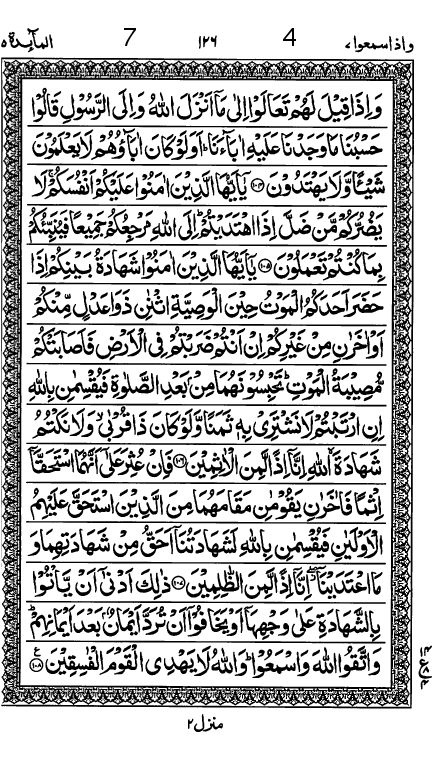 واذاسمعوا٧ 4 ١٢٦ 7 المآىٕدة٥
وَاِذَا قِيْلَ لَهُمْ تَعَالَوْا اِلٰى مَاۤ اَنْزَلَ اللّٰهُ وَاِلَى الرَّسُوْلِ قَالُوْا
حَسْبُنَا مَا وَجَدْنَا عَلَيْهِ اٰبَآءَنَا ؕ اَوَلَوْ كَانَ اٰبَآؤُهُمْ لَا يَعْلَمُوْنَ
شَيْـًٔا وَّلَا يَهْتَدُوْنَ ۝١٠٤ يٰۤاَيُّهَا الَّذِيْنَ اٰمَنُوْا عَلَيْكُمْ اَنْفُسَكُمْ ۚ لَا
يَضُرُّكُمْ مَّنْ ضَلَّ اِذَا اهْتَدَيْتُمْ ؕ اِلَى اللّٰهِ مَرْجِعُكُمْ جَمِيْعًا فَيُنَبِّئُكُمْ
بِمَا كُنْتُمْ تَعْمَلُوْنَ ۝١٠٥ يٰۤاَيُّهَا الَّذِيْنَ اٰمَنُوْا شَهَادَةُ بَيْنِكُمْ اِذَا
حَضَرَ اَحَدَكُمُ الْمَوْتُ حِيْنَ الْوَصِيَّةِ اثْنٰنِ ذَوَا عَدْلٍ مِّنْكُمْ
اَوْ اٰخَرٰنِ مِنْ غَيْرِكُمْ اِنْ اَنْتُمْ ضَرَبْتُمْ فِى الْاَرْضِ فَاَصَابَتْكُمْ
مُّصِيْبَةُ الْمَوْتِ ؕ تَحْبِسُوْنَهُمَا مِنْۢ بَعْدِ الصَّلٰوةِ فَيُقْسِمٰنِ بِاللّٰهِ
اِنِ ارْتَبْتُمْ لَا نَشْتَرِىْ بِهٖ ثَمَنًا وَّلَوْ كَانَ ذَا قُرْبٰى ۙ وَلَا نَكْتُمُ
شَهَادَةَ ۙ اللّٰهِ اِنَّاۤ اِذًا لَّمِنَ الْاٰثِمِيْنَ ۝١٠٦ فَاِنْ عُثِرَ عَلٰۤى اَنَّهُمَا اسْتَحَقَّاۤ
اِثْمًا فَاٰخَرٰنِ يَقُوْمٰنِ مَقَامَهُمَا مِنَ الَّذِيْنَ اسْتَحَقَّ عَلَيْهِمُ
الْاَوْلَيٰنِ فَيُقْسِمٰنِ بِاللّٰهِ لَشَهَادَتُنَاۤ اَحَقُّ مِنْ شَهَادَتِهِمَا وَ
مَا اعْتَدَيْنَاۤ ۖ اِنَّاۤ اِذًا لَّمِنَ الظّٰلِمِيْنَ ۝١٠٧ ذٰلِكَ اَدْنٰۤى اَنْ يَّاْتُوْا
بِالشَّهَادَةِ عَلٰى وَجْهِهَاۤ اَوْ يَخَافُوْۤا اَنْ تُرَدَّ اَيْمَانٌۢ بَعْدَ اَيْمَانِهِمْ ؕ
وَاتَّقُوا اللّٰهَ وَاسْمَعُوْا ؕ وَاللّٰهُ لَا يَهْدِى الْقَوْمَ الْفٰسِقِيْنَ ۝١٠٨ ع
منزل ٢